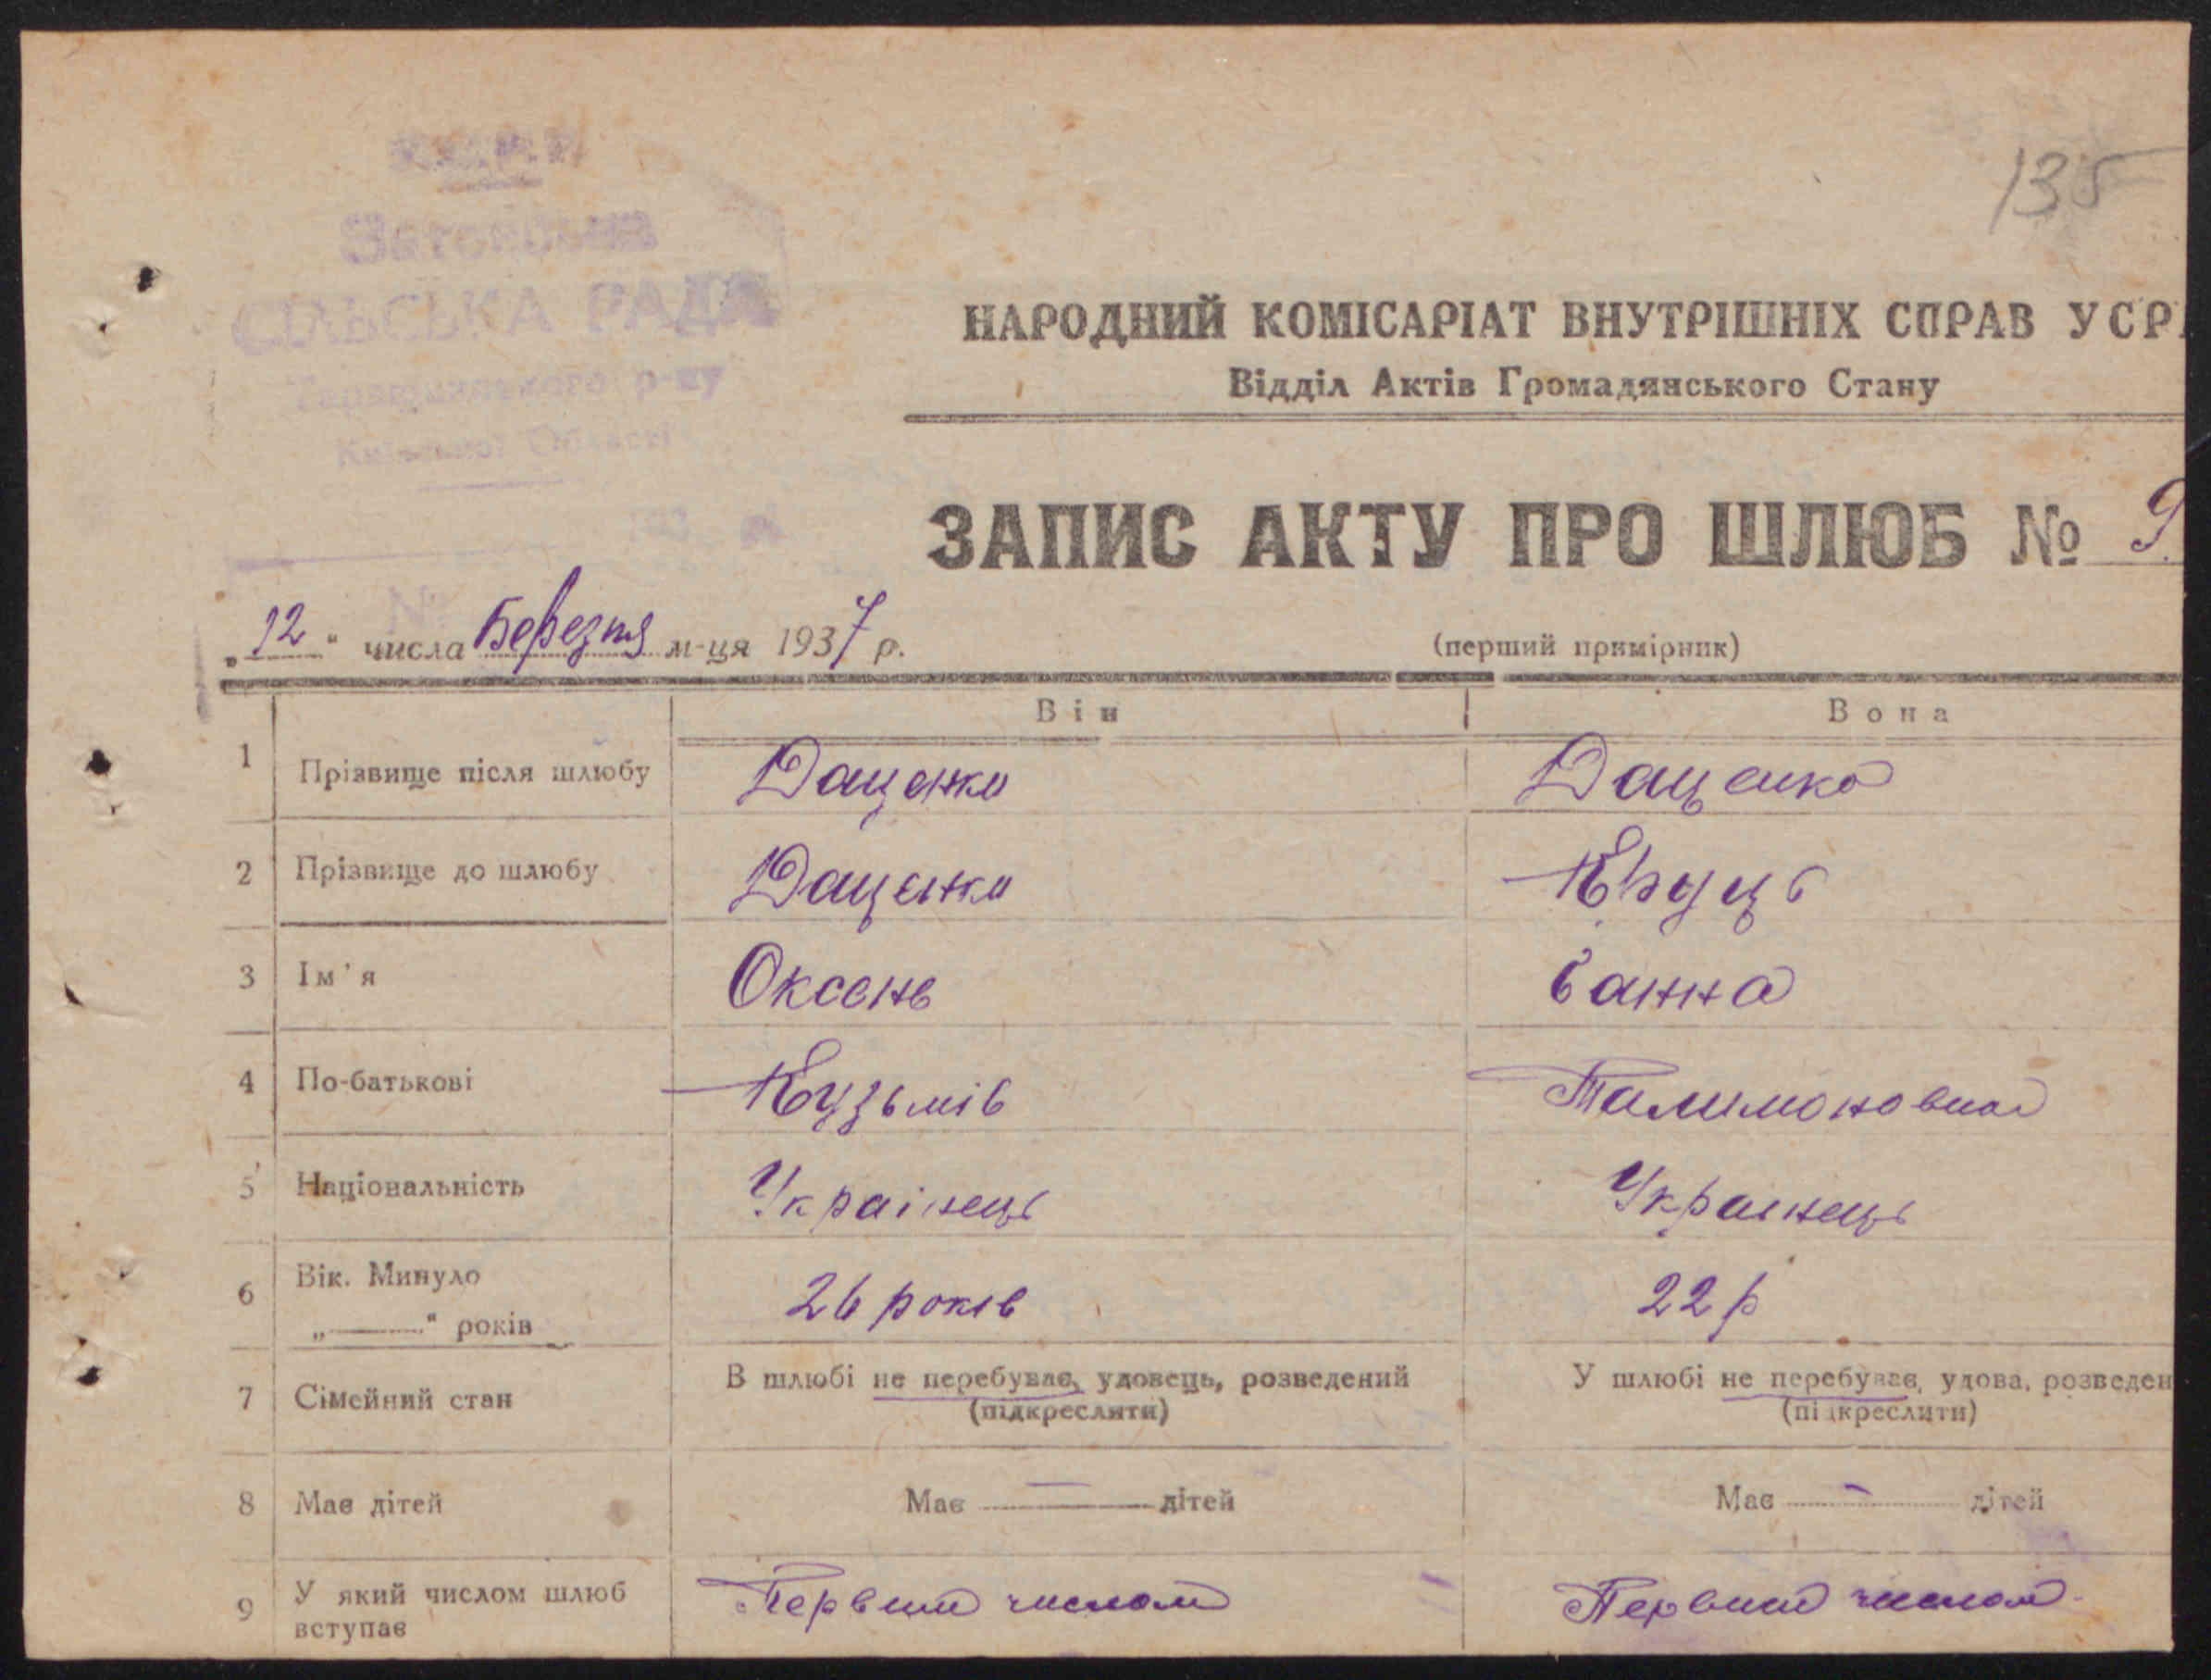 135
СІЛЬСЬКА РАДА
Таращанського р-ну
Київської Області
НАРОДНИЙ КОМІСАРІАТ ВНУТРІШНІХ СПРАВ УСР
Відділ Актів Громадянського Стану
ЗАПИС АКТУ ПРО ШЛЮБ № 9
„12“ числа Березня м-ця 1937 р.
(перший примірник)
Він Вона
1 Прізвище після шлюбу Даценко Даценко
2 Прізвище до шлюбу Даценко
3 Ім'я Оксень Ганна
4 По-батькові Кузьмів
5 Національність Українець Украінець
6 Вік. Минуло „ “ років 26 років 22 р
7 Сімейний стан В шлюбі не перебуває, удовець, розведений (підкреслити) У шлюбі не перебуває, удова, розведен (підкреслити)
8 Має дітей Має — дітей Має — дітей
9 У який числом шлюб вступає Первим числом Первим числом